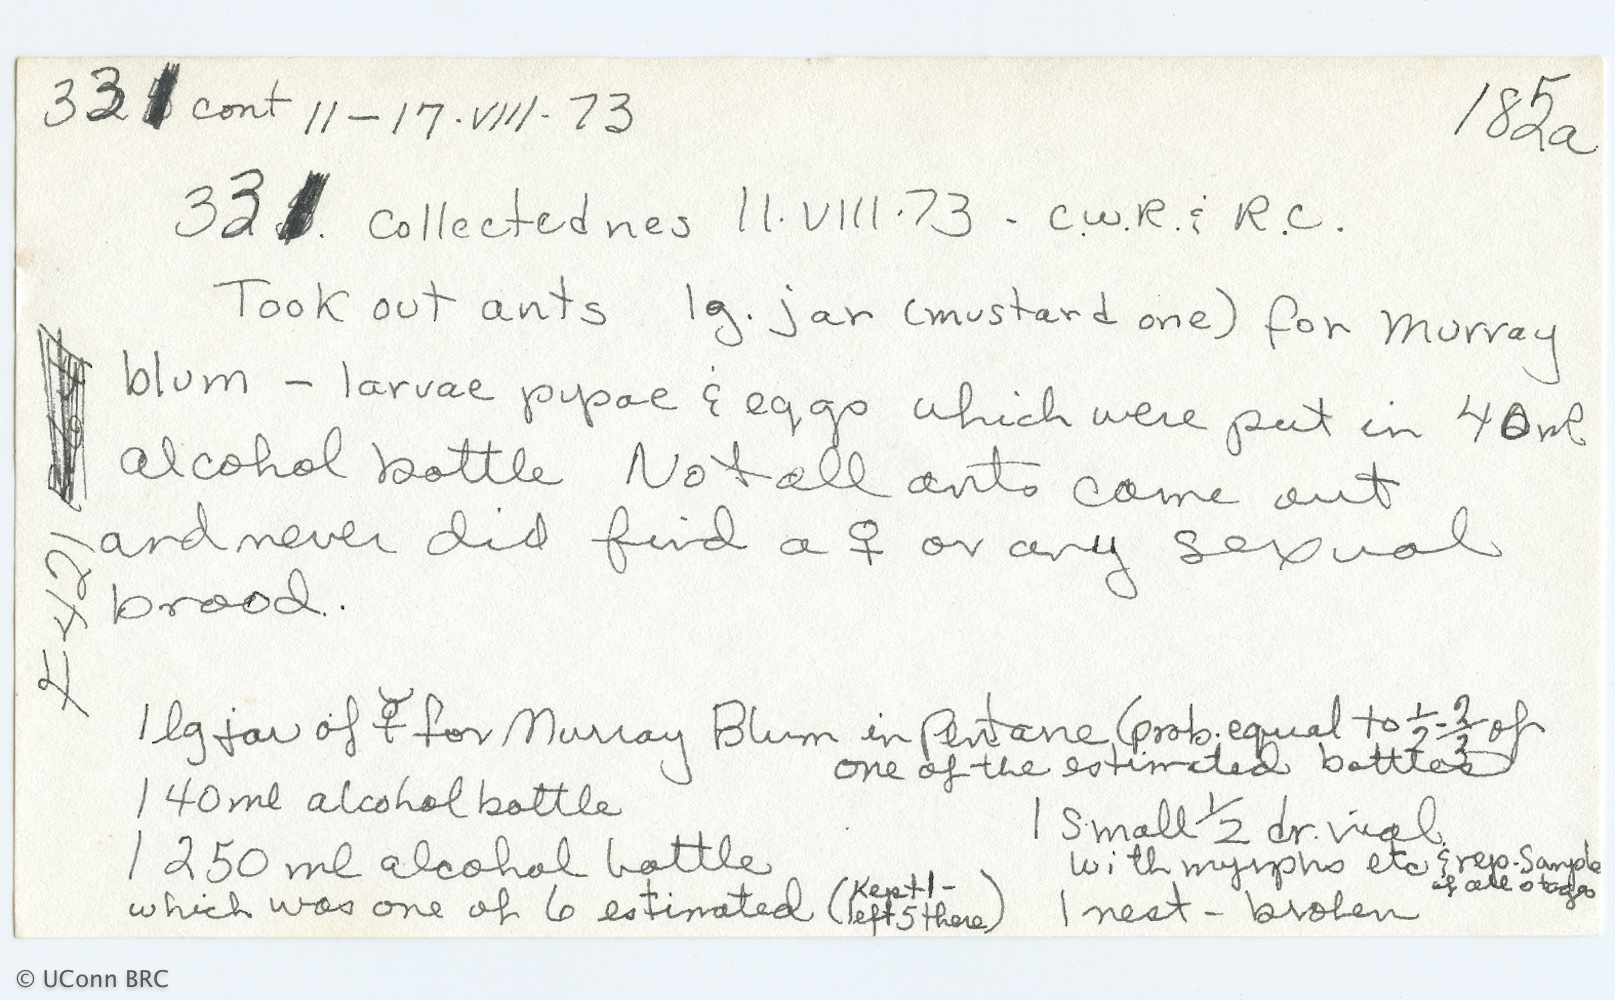 332 cont 11-17.VIII.73
185a
332. collected nes 11.VIII.73 - C.W.R. & R.C.
Took out ants 1g. jar (mustard one) for Murray
blum - larvae pupae & eggs which were put in 40ml
alcohol bottle Not all ants came out
and never did find a ♀ or any sexual
brood..
F-421
1 lg jar of ☿ for Murray Blum in Pentane (prob. equal to 1/2-2/3 of
one of the estimated bottles)
1 40ml alcohol bottle
1 250 ml alcohol bottle
which was one of 6 estimated (Kept 1-
left 5 there)
1 small 1/2 dr. vial
with nymphs etc & rep. Sample
of all stages
1 nest - broken
© UConn BRC